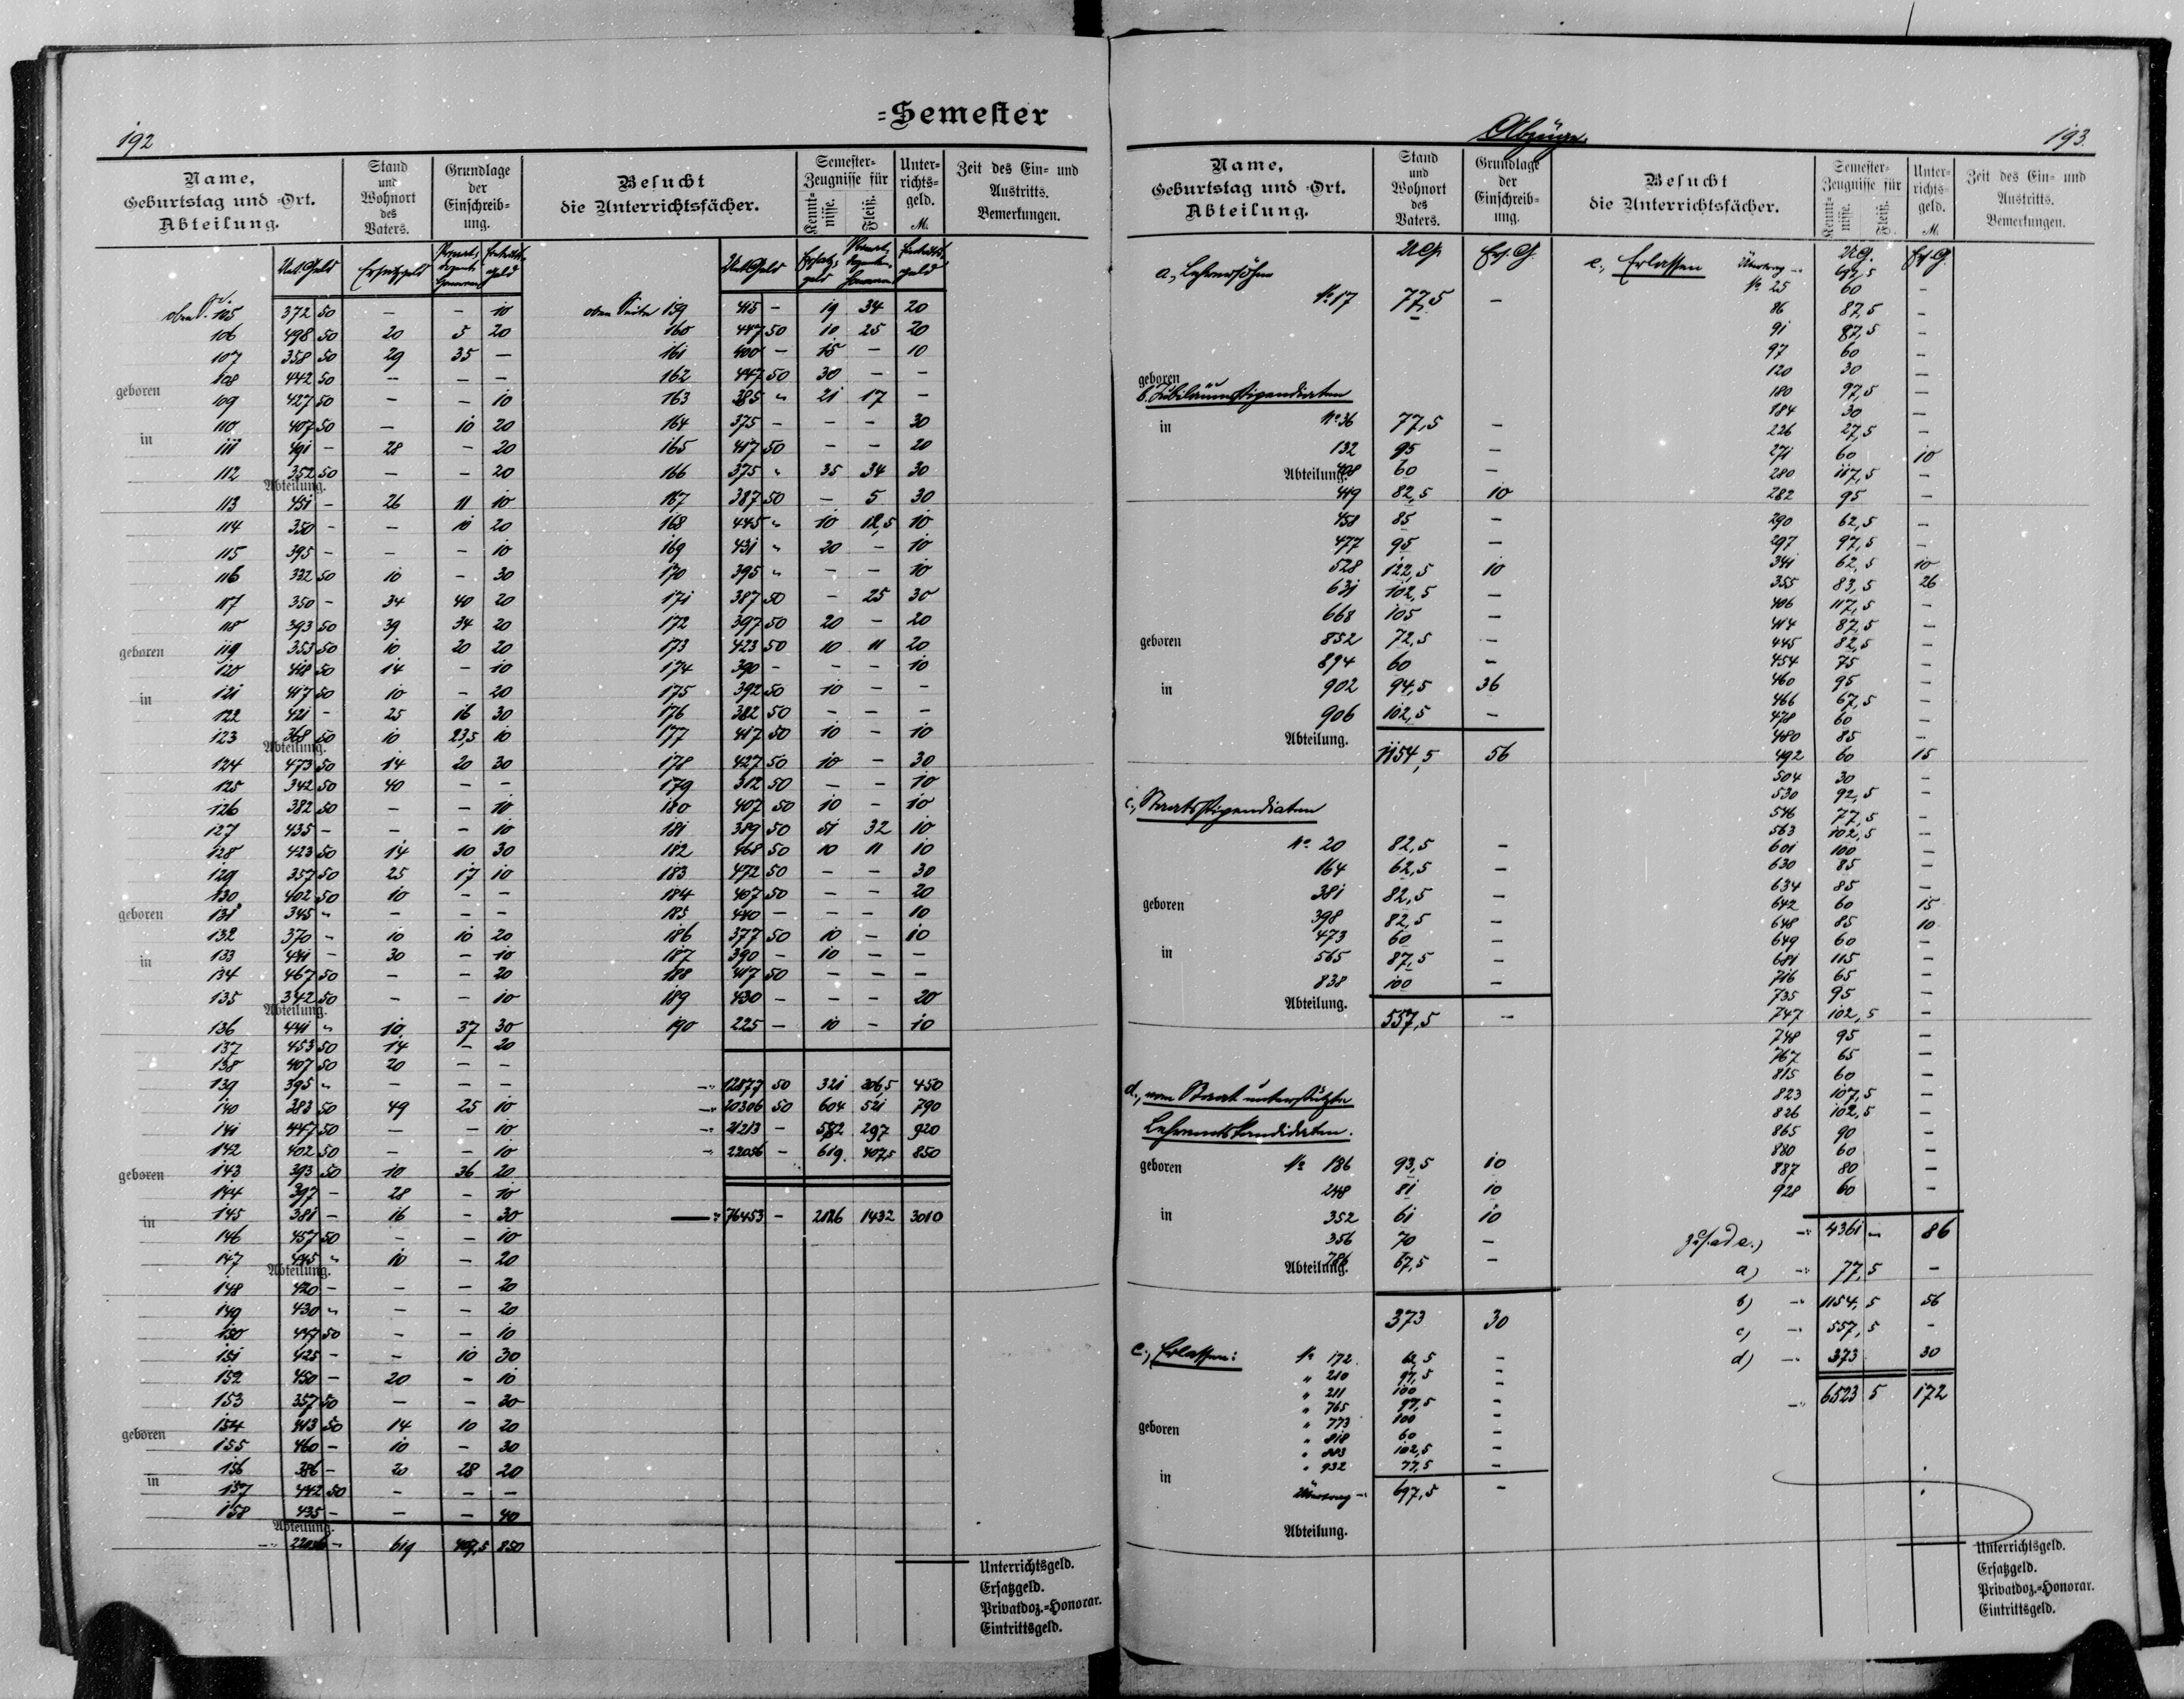 =Semester
192
Name,
Geburtstag und =Ort.
Abteilung.
Stand
und
Wohnort
des
Vaters.
Grundlage
der
Einschreib=
ung.
Besucht
die Unterrichtsfächer.
Semester=
Zeugnisse für
Kennt=
nisse.
Fleiß.
Unter=
richts=
geld.
M.
Zeit des Ein= und
Austritts.
Bemerkungen.
Unt. Geld Ersatzgeld
105 372 50 – – 10
106 498 50 20 5 20
107 358 50 29 35 –
108 442 50 – – –
geboren
109 427 50 – – 10
110 407 50 – 10 20
in
111 491 – 28 – 20
112 352 50 – – 20
Abteilung.
113 451 – 26 11 10
114 350 – – 10 20
115 395 – – – 10
116 332 50 10 – 30
117 350 – 34 40 20
118 393 50 39 34 20
geboren
119 353 50 10 20 20
120 418 50 14 – 10
in
121 417 50 10 – 20
122 421 – 25 16 30
123 368 50 10 23,5 10
Abteilung.
124 473 50 14 20 30
125 342 50 40 – –
126 382 50 – – 10
127 435 – – – 10
128 423 50 14 10 30
129 357 50 25 17 10
130 402 50 10 – –
geboren
131 345 " – – –
132 370 – 10 10 20
in
133 441 – 30 – 10
134 467 50 – – 20
135 342 50 – – 10
Abteilung.
136 441 " 10 37 30
137 453 50 14 – 20
138 407 50 20 – –
139 395 " – – –
140 383 50 49 25 10
141 447 50 – – 10
142 402 50 – – 10
geboren
143 393 50 10 36 20
144 397 – 28 – 10
in
145 381 – 16 – 30
146 457 50 – – 10
147 445 " 10 – 20
Abteilung.
148 420 – – – 20
149 430 " – – 20
150 447 50 – – 10
151 425 – – 10 30
152 450 – 20 – 10
153 357 50 – – 30
154 413 50 14 10 20
geboren
155 460 – 10 – 30
156 386 – 20 28 20
in
157 442 50 – – –
158 435 – – – 40
Abteilung.
22056 – 619 407,5 850
Unt. Geld
159 415 – 19 34 20
160 447 50 10 25 20
161 400 – 15 – 10
162 447 50 30 – –
163 385 " 21 17 –
164 375 – – – 30
165 417 50 – – 20
166 375 " 35 34 30
167 387 50 – 5 30
168 445 " 10 12,5 10
169 431 " 20 – 10
170 395 " – – 10
171 387 50 – 25 30
172 397 50 20 – 20
173 423 50 10 11 20
174 390 – – – 10
175 392 50 10 – –
176 382 50 – – –
177 417 50 10 – 10
178 427 50 10 – 30
179 312 50 – – 10
180 407 50 10 – 10
181 389 50 51 32 10
182 468 50 10 11 10
183 472 50 – – 30
184 407 50 – – 20
185 440 – – – 10
186 377 50 10 – 10
187 390 – 10 – –
188 417 50 – – –
189 430 – – – 20
190 225 – 10 – 10
12877 50 321 206,5 450
20306 50 604 521 790
21213 – 582 297 920
22056 – 619 407,5 850
76453 – 2126 1432 3010
Unterrichtsgeld.
Ersatzgeld.
Privatdoz.=Honorar.
Eintrittsgeld.
Abzüge.
193.
Name,
Geburtstag und =Ort.
Abteilung.
Stand
und
Wohnort
des
Vaters.
Grundlage
der
Einschreib=
ung.
Besucht
die Unterrichtsfächer.
Semester=
Zeugnisse für
Kennt=
nisse.
Fleiß.
Unter=
richts=
geld.
M.
Zeit des Ein= und
Austritts.
Bemerkungen.
U.G. Ers. G.
a., Lehrersöhne
No 17 77,5 –
geboren
b. Jubiläumsstipendiaten
in
No 36 77,5 –
132 95 –
Abteilung.
408 60 –
419 82,5 10
458 85 –
477 95 –
528 122,5 10
631 102,5 –
668 105 –
geboren
852 72,5 –
894 60 –
in
902 94,5 36
906 102,5 –
Abteilung.
1154,5 56
c., Staatsstipendiaten
No 20 82,5 –
164 62,5 –
381 82,5 –
geboren
398 82,5 –
473 60 –
in
565 87,5 –
838 100 –
Abteilung.
557,5 –
d., vom Staat unterstützte
Lehramtskandidaten.
geboren
No 186 93,5 10
248 81 10
in
352 61 10
356 70 –
Abteilung.
786 67,5 –
373 30
e., Erlassen:
No 172 62,5 –
" 210 97,5 –
" 211 100 –
" 765 97,5 –
" 773 100 –
geboren
" 818 60 –
102,5 –
" 932 77,5 –
in
Übertrag 697,5 –
Abteilung.
e., Erlassen
U.G. Ers. G.
Übertrag 697,5
No 25 60 –
86 87,5 –
91 87,5 –
97 60 –
120 30 –
180 97,5 –
184 30 –
226 27,5 –
271 60 10
280 117,5 –
282 95 –
290 62,5 –
297 97,5 –
341 62,5 10
355 83,5 26
406 117,5 –
414 87,5 –
445 82,5 –
454 75 –
460 95 –
466 67,5 –
478 60 –
480 85 –
492 60 15
504 30 –
530 92,5 –
546 77,5 –
563 102,5 –
601 100 –
630 85 –
634 85 –
642 60 15
648 85 10
649 60 –
681 115 –
716 65 –
735 95 –
747 102,5 –
748 95 –
767 65 –
815 60 –
823 107,5 –
826 102,5 –
865 90 –
880 60 –
887 80 –
928 60 –
4361 – 86
a) 77,5 –
b) 1154,5 56
c) 557,5 –
d) 373 30
6523 5 172
Unterrichtsgeld.
Ersatzgeld.
Privatdoz.=Honorar.
Eintrittsgeld.